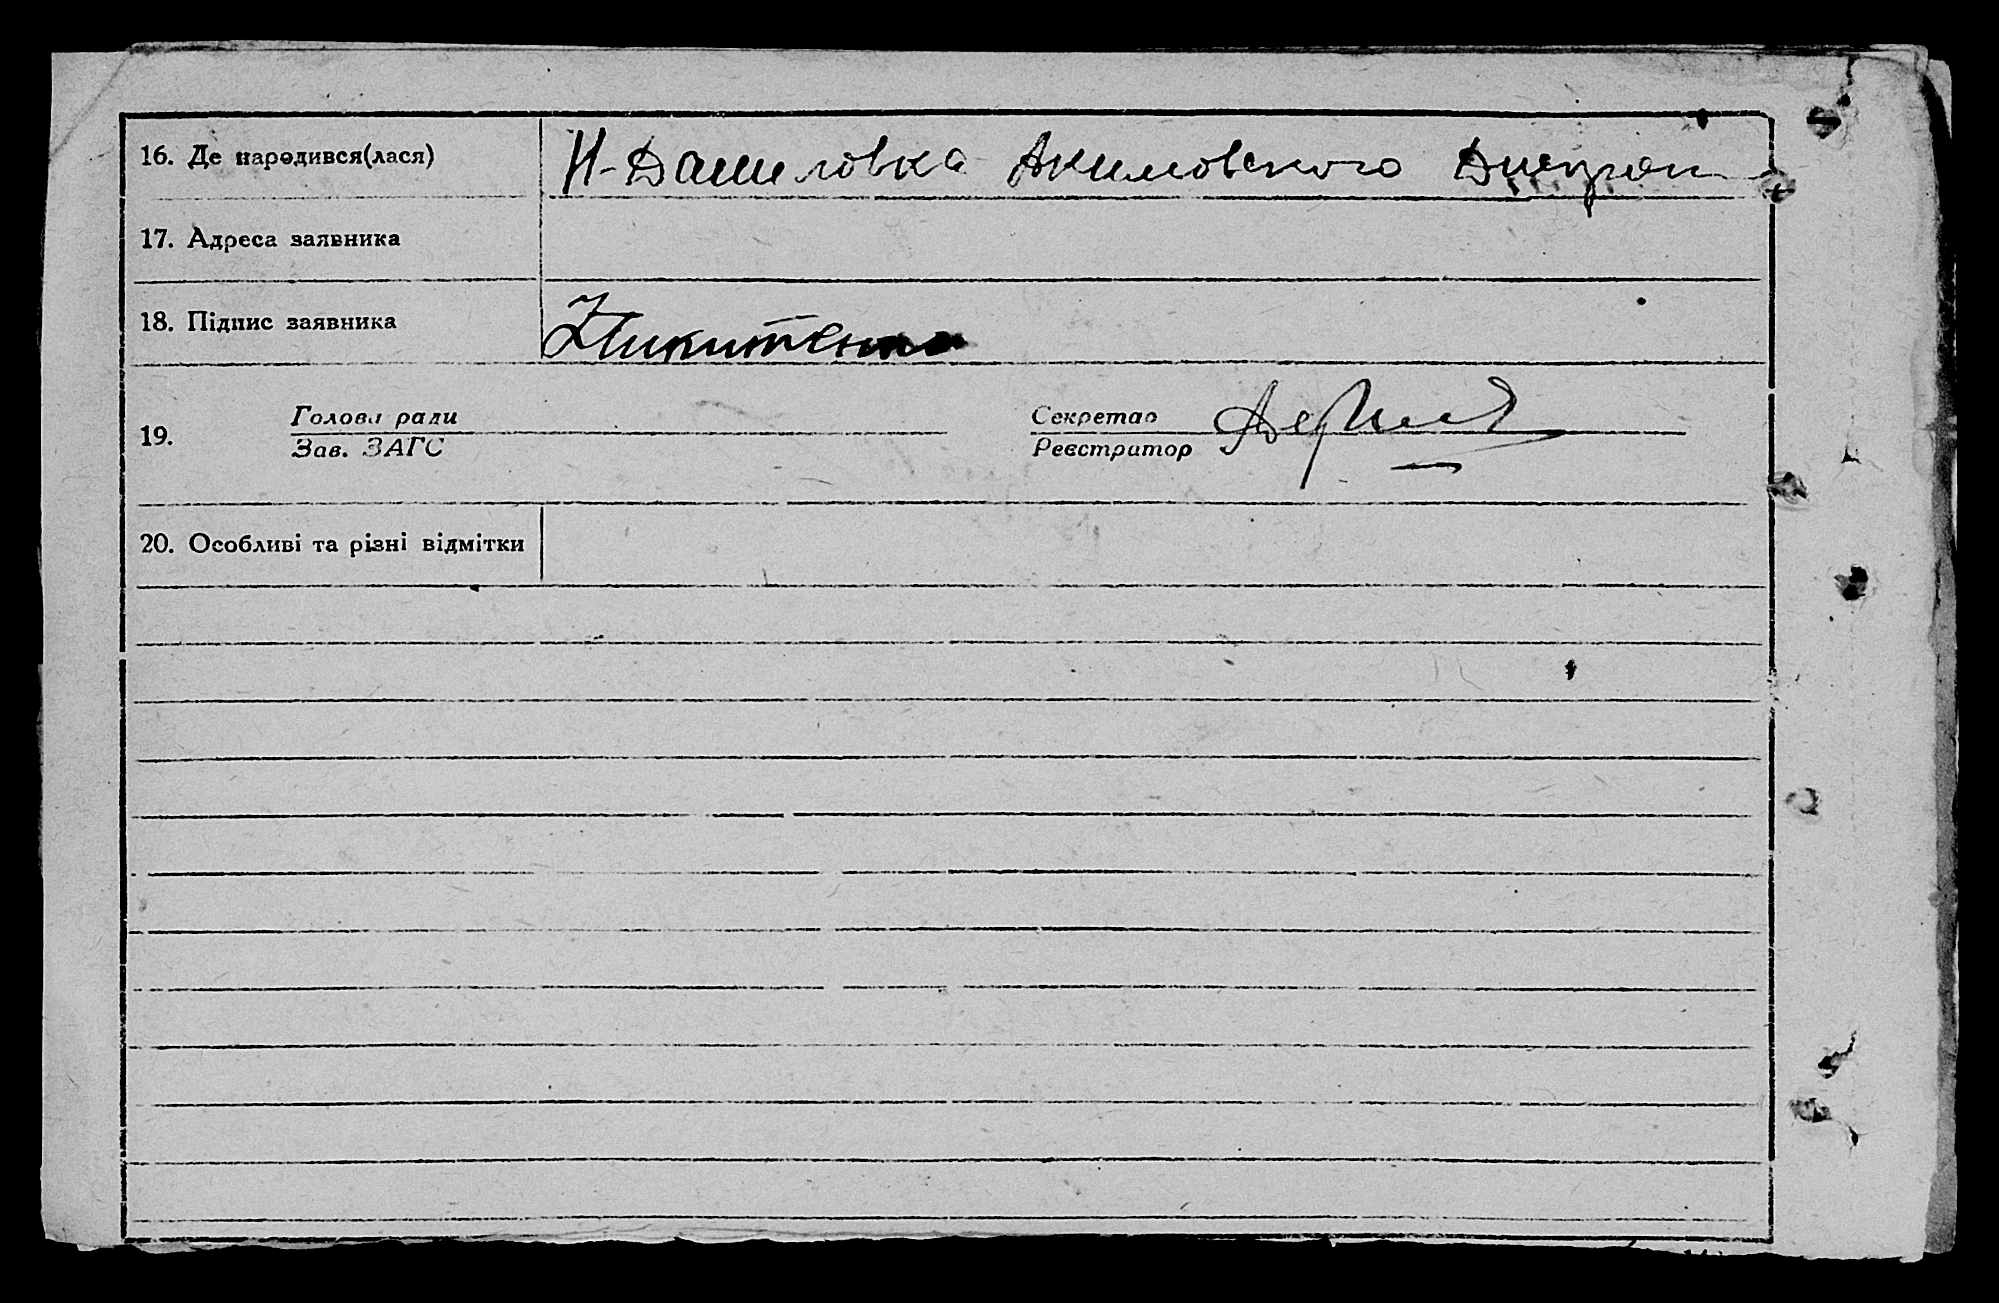 16. Де народився(лася) Н-Даниловка Акимовского Днепроп
17. Адреса заявника
18. Підпис заявника Никитенко
19. Голова ради Секретар
Зав. ЗАГС Реєстратор
20. Особливі та різні відмітки